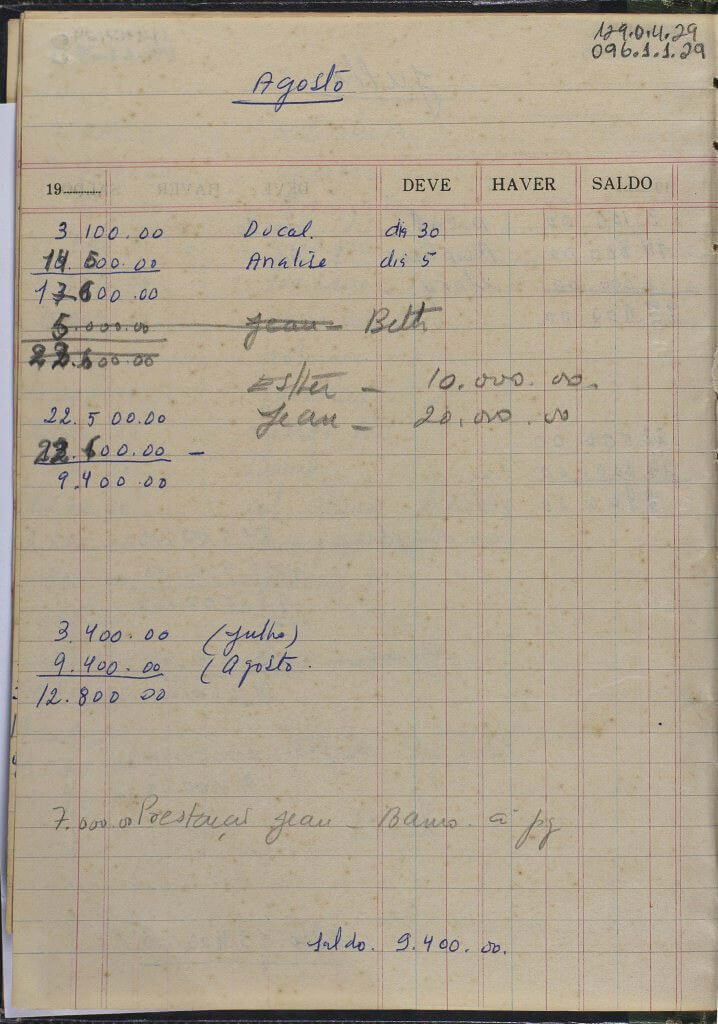 129.0.4.29
096.1.1.29
Agosto
19........ DEVE HAVER SALDO
3 100.00 Ducal dia 30
14.500.00 Analise dia 5
17 600.00
5.000.00 Jean Beth
22.600.00
Ester - 10.000.00.
22.500.00 Jean - 20.000.00
.100.00 -
9.400.00
3.400.00 (Julho)
9.400.00 (Agosto.
12.800 00
7.000.00 Prestação Jean - a pg
Saldo. 9.400.00.